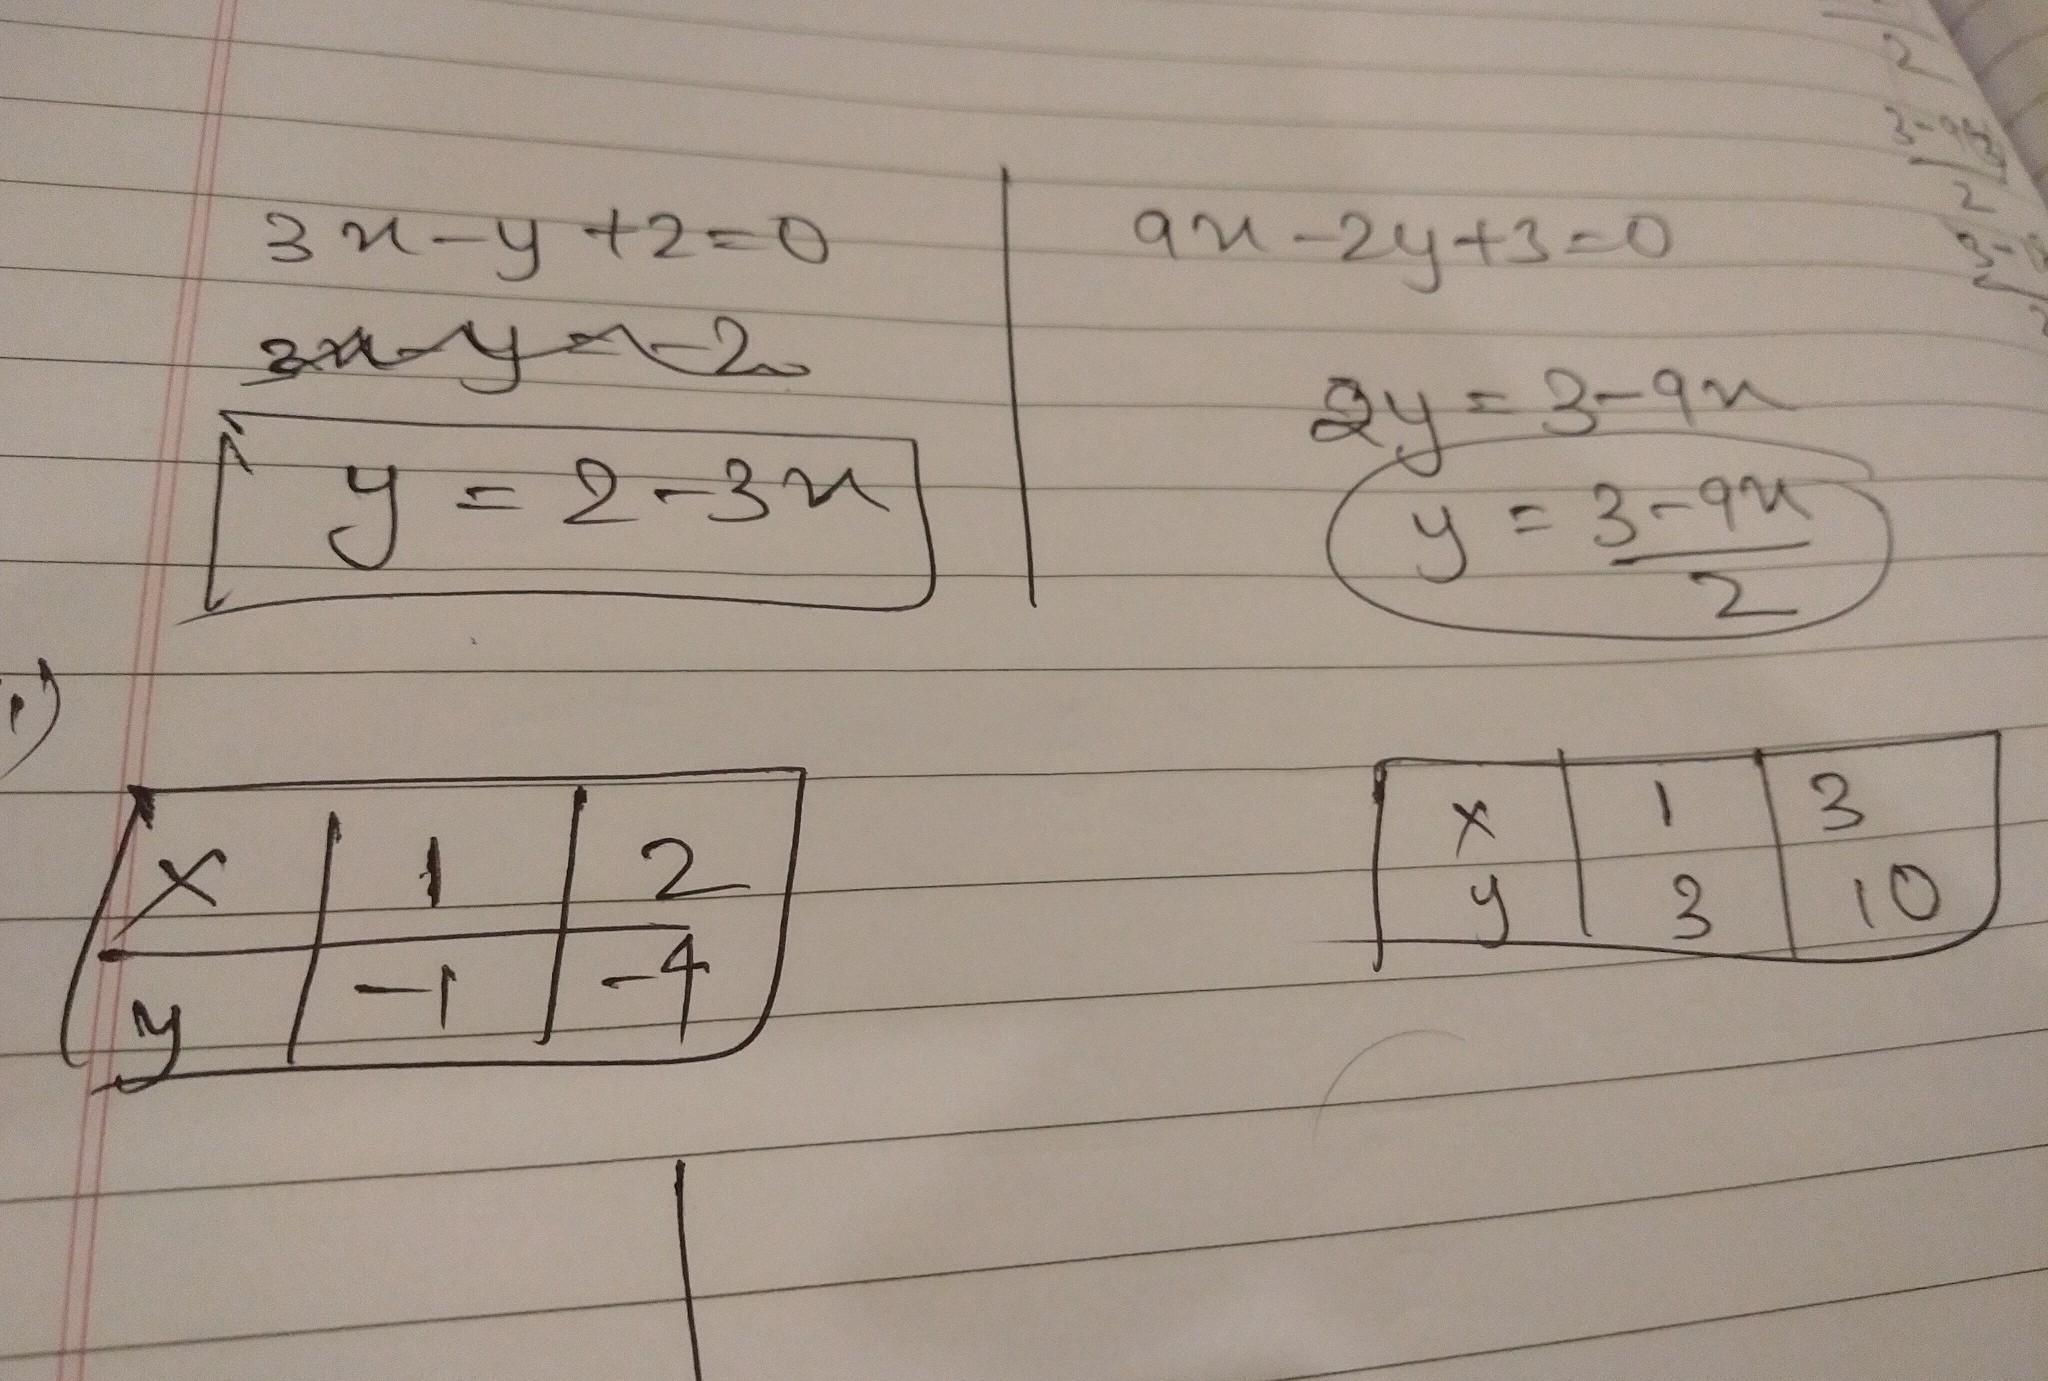 3x-y+2=0
3x-y=-2
y = 2-3x
9x-2y+3=0
2y=3-9x
y = 3-9x
2
x 1 2
y -1 -4
x 1 3
y 3 10